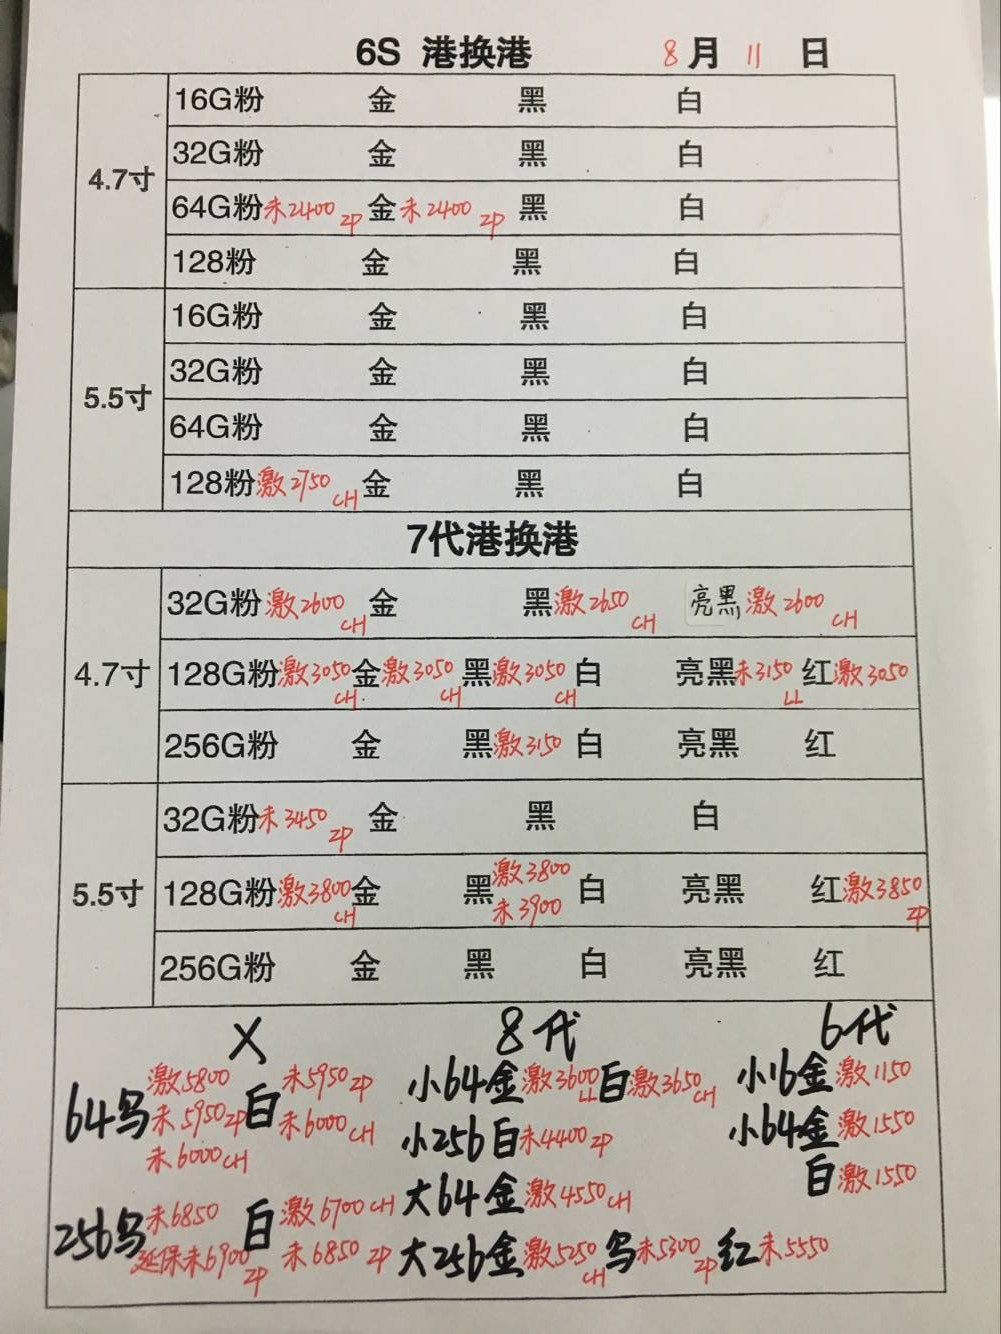 6S 港换港 8月11日
4.7寸
16G粉 金 黑 白
32G粉 金 黑 白
64G粉 未2400 ZP 金 未2400 ZP 黑 白
128粉 金 黑 白
5.5寸
16G粉 金 黑 白
32G粉 金 黑 白
64G粉 金 黑 白
128粉 激2750 CH 金 黑 白
7代港换港
4.7寸
32G粉 激2600 CH 金 黑 激2650 CH 亮黑 激2600 CH
128G粉 激3050 CH 金 激3050 CH 黑 激3050 CH 白 亮黑 未3150 LL 红 激3050
256G粉 金 黑 激3150 白 亮黑 红
5.5寸
32G粉 未3450 ZP 金 黑 白
128G粉 激3800 CH 金 黑 激3800 未3900 白 亮黑 红 激3850 ZP
256G粉 金 黑 白 亮黑 红
X
64乌 激5800 未5950ZP 未6000CH 白 未5950ZP 未6000CH
256乌 未6850 延保未6900ZP 白 激6700CH 未6850ZP
8代
小64金 激3600 LL 白 激3650 CH
小256白 未4400ZP
大64金 激4550CH
大256金 激5250 CH 乌 未5300 ZP 红 未5550
6代
小16金 激1150
小64金 激1550
白 激1550